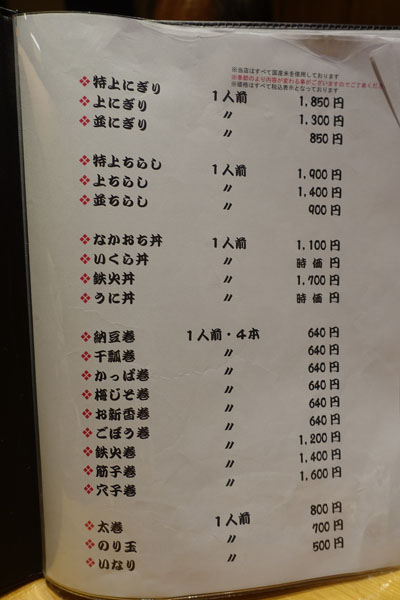 ※当店はすべて国産米を使用しております
※季節のより内容が変わる事がございますのでご了承くださ
※価格はすべて税込表示となっております
❖特上にぎり 1人前 1,850円
❖上にぎり 〃 1,300円
❖並にぎり 〃 850円
❖特上ちらし 1人前 1,900円
❖上ちらし 〃 1,400円
❖並ちらし 〃 900円
❖なかおち丼 1人前 1,100円
❖いくら丼 〃 時価円
❖鉄火丼 〃 1,700円
❖うに丼 〃 時価円
❖納豆巻 1人前・4本 640円
❖干瓢巻 〃 640円
❖かっぱ巻 〃 640円
❖梅じそ巻 〃 640円
❖お新香巻 〃 640円
❖ごぼう巻 〃 640円
❖鉄火巻 〃 1,200円
❖筋子巻 〃 1,400円
❖穴子巻 〃 1,600円
❖太巻 1人前 800円
❖のり玉 〃 700円
❖いなり 〃 500円